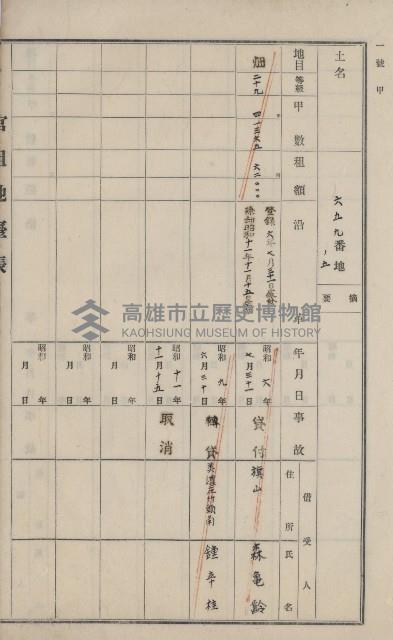 一號甲
土名
六五九番地ノ五
摘要
地目 等級 甲數 租額 沿革
年月日 事故 借受人 住所 氏名
畑 二十九 六二〇〇〇
登錄 六年七月三十一日
除却昭和十一年十一月十五日
昭和六年七月三十一日 貸付 旗山 森龜齡
昭和九年六月二十日 轉貸 鍾辛桂
昭和十一年十一月十五日 取消
昭和 年 月 日
昭和 年 月 日
昭和 年 月 日
官租地臺帳
高雄市立歷史博物館
KAOHSIUNG MUSEUM OF HISTORY